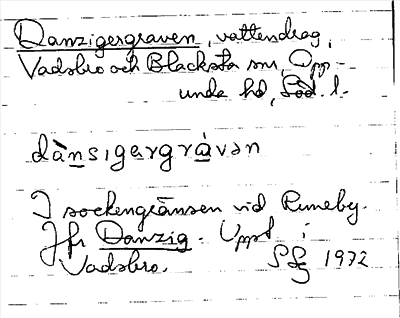 Danzigergraven, vattendrag,
Vadsbro och Blacksta snr, Opp-
unda hd, Söd. l.
dànsigərgrà̱vən
I sockengränsen vid Runeby.
Jfr Danzig. Uppt i
Vadsbro. 1972